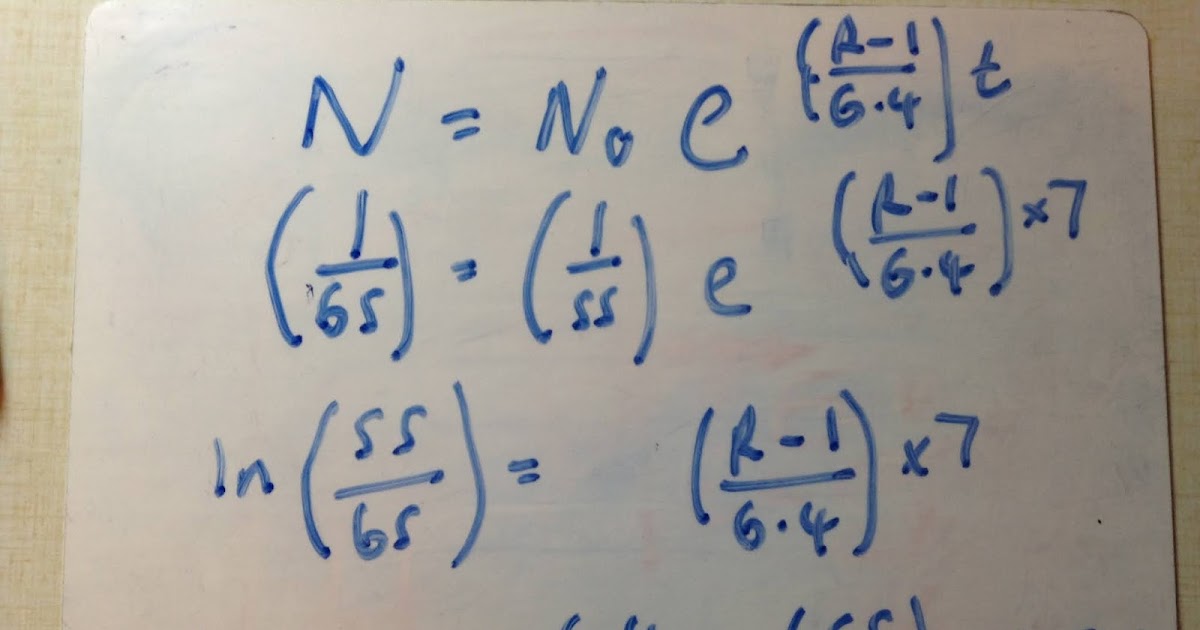 N = N₀ e^((R-1)/(6.4)) t
(1/65) = (1/55) e^((R-1)/(6.4)) ×7
ln (55/65) = ((R-1)/(6.4)) ×7